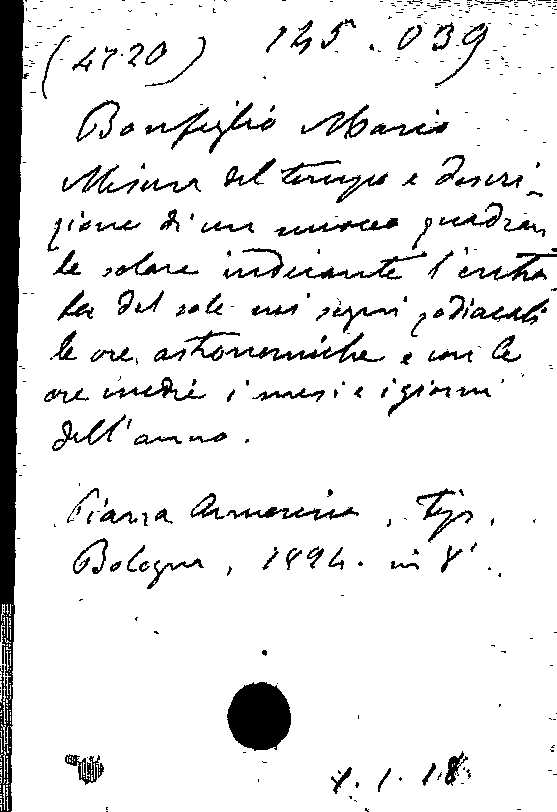 (4720) 145.039
Bonfiglio Mario
Misura del tempo e descri-
zione di un nuovo quadran
te solare indicante l'entra
ta del sole nei segni zodiacali
le ore astronomiche e con le
ore medie i mesi e i giorni
dell'anno.
Piazza Armerina, Tip.
Bologna, 1894. in 8°.
Y.1.18